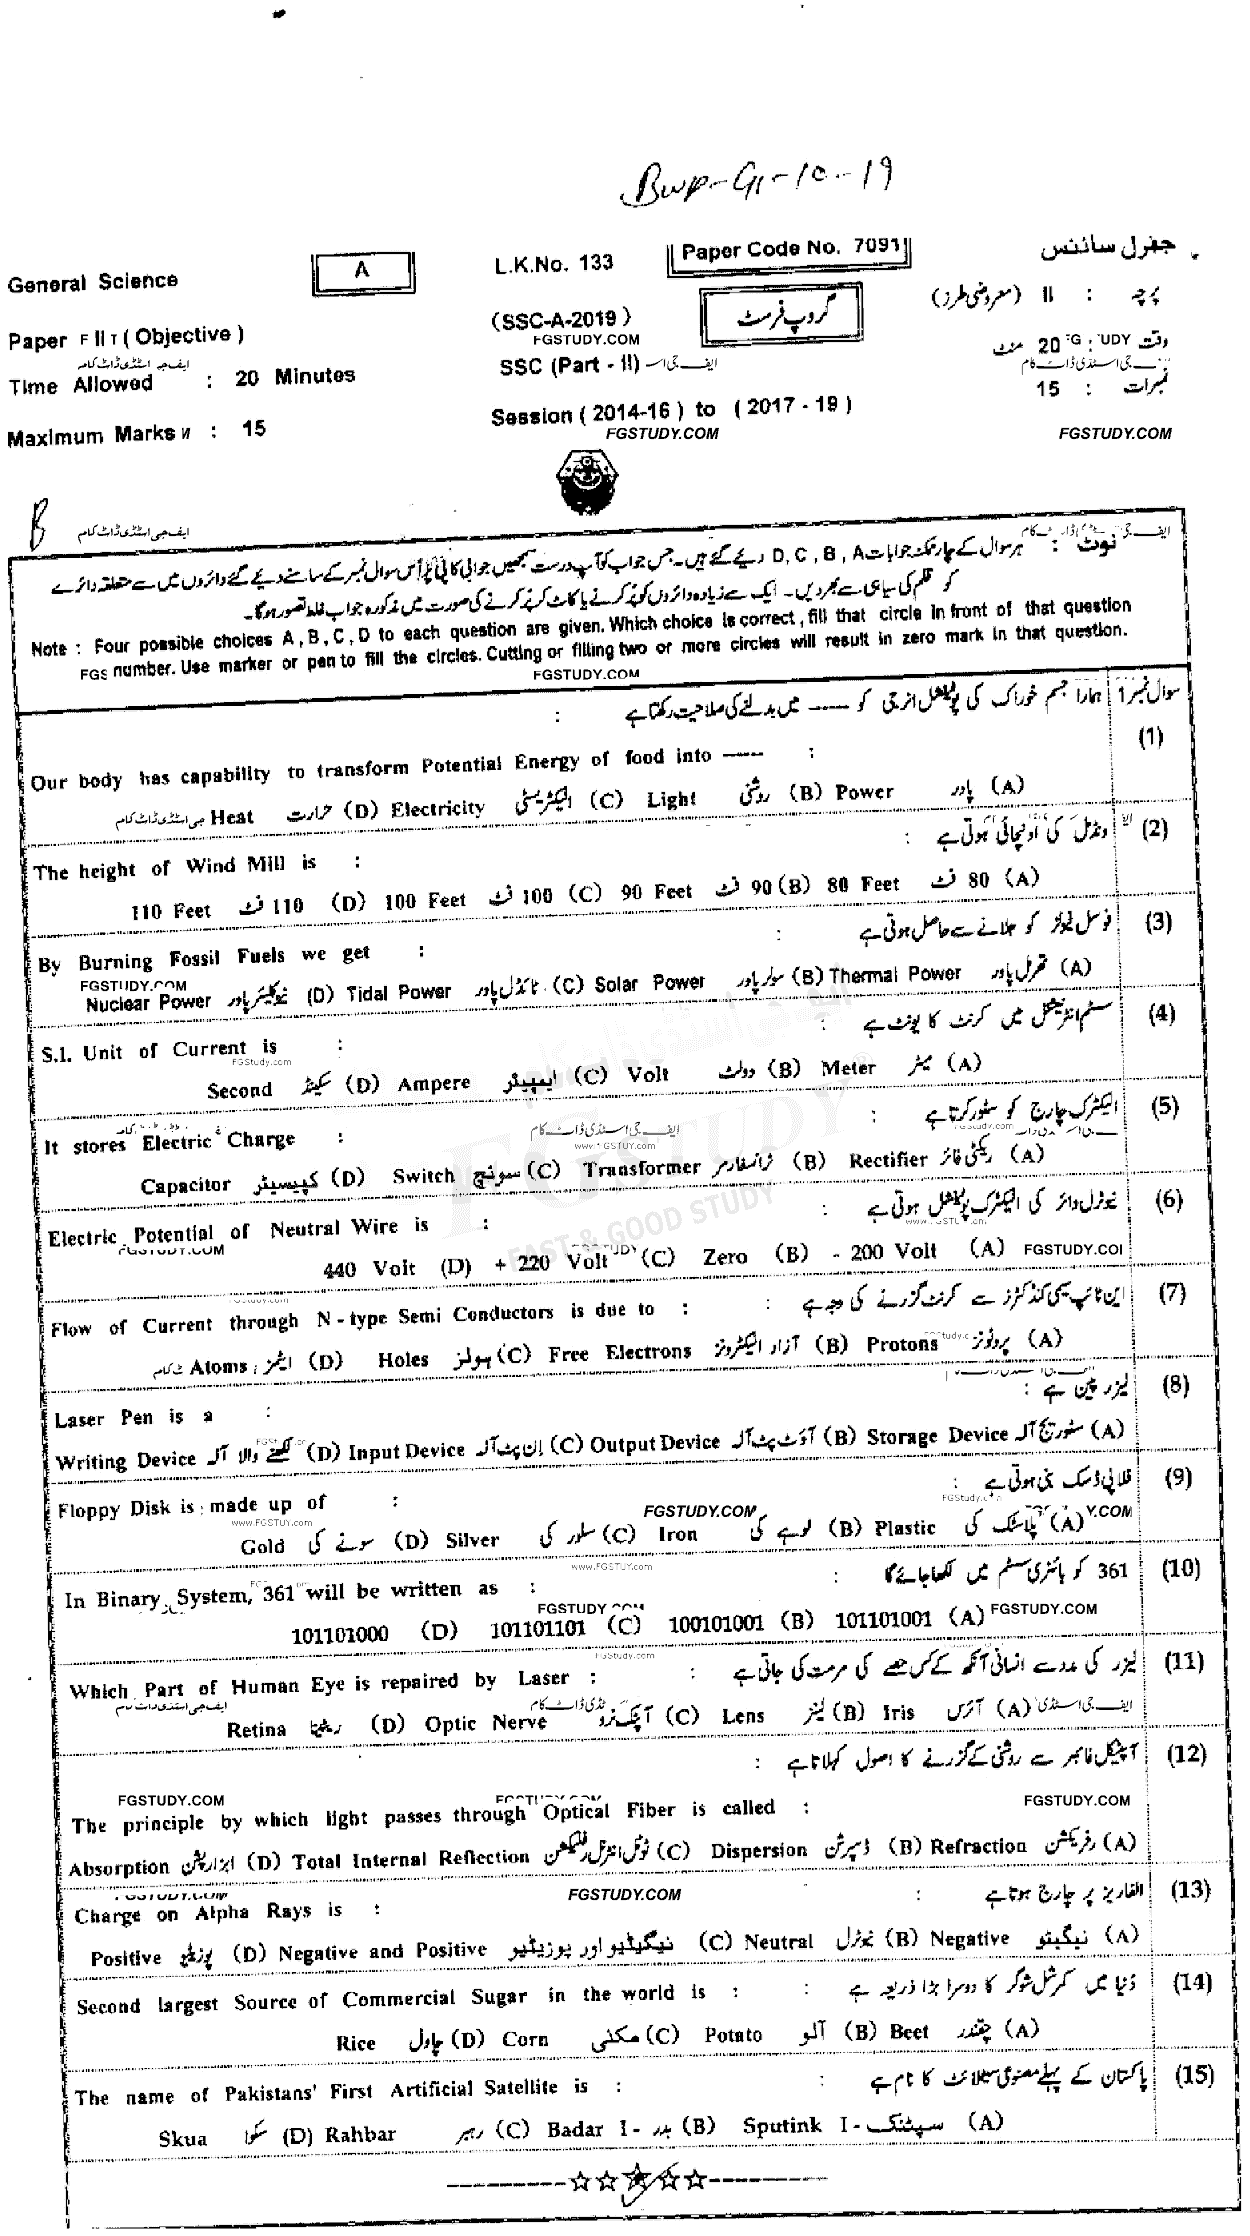 Bwp-G1-10-19
General Science A L.K.No. 133 Paper Code No. 7091 جنرل سائنس
Paper II (Objective) (SSC-A-2019) گروپ فرسٹ پرچہ : II (معروضی طرز)
FGSTUDY.COM
Time Allowed : 20 Minutes SSC (Part - II) وقت : 20 منٹ
Maximum Marks : 15 Session ( 2014-16 ) to ( 2017 - 19 ) نمبرات : 15
FGSTUDY.COM FGSTUDY.COM
B
ایف جی اسٹڈی ڈاٹ کام
نوٹ : ہر سوال کے چار ممکنہ جوابات D, C, B, A دیے گئے ہیں۔ جس جواب کو آپ درست سمجھیں جوابی کاپی پر اُس سوال نمبر کے سامنے دیے گئے دائروں میں سے متعلقہ دائرے
کو قلم کی سیاہی سے بھر دیں۔ ایک سے زیادہ دائروں کو پُر کرنے یا کاٹ کر پُر کرنے کی صورت میں مذکورہ جواب غلط تصور ہوگا۔
Note : Four possible choices A, B, C, D to each question are given. Which choice is correct, fill that circle in front of that question
number. Use marker or pen to fill the circles. Cutting or filling two or more circles will result in zero mark in that question.
FGSTUDY.COM
سوال نمبر 1 ہمارا جسم خوراک کی پوٹینشل انرجی کو ---- میں بدلنے کی صلاحیت رکھتا ہے :
(1) Our body has capability to transform Potential Energy of food into ---- :
(A) پاور Power (B) روشنی Light (C) الیکٹریسٹی Electricity (D) حرارت Heat
(2) ونڈمل کی اونچائی ہوتی ہے :
The height of Wind Mill is :
(A) 80 فٹ 80 Feet (B) 90 فٹ 90 Feet (C) 100 فٹ 100 Feet (D) 110 فٹ 110 Feet
(3) فوسل فیولز کو جلانے سے حاصل ہوتی ہے :
By Burning Fossil Fuels we get :
FGSTUDY.COM
(A) تھرمل پاور Thermal Power (B) سولر پاور Solar Power (C) ٹائڈل پاور Tidal Power (D) نیوکلیئر پاور Nuclear Power
(4) سسٹم انٹرنیشنل میں کرنٹ کا یونٹ ہے :
S.I. Unit of Current is :
FGStudy.com
(A) میٹر Meter (B) وولٹ Volt (C) ایمپیئر Ampere (D) سیکنڈ Second
(5) الیکٹرک چارج کو سٹور کرتا ہے :
It stores Electric Charge :
ایف جی اسٹڈی ڈاٹ کام
(A) ریکٹی فائر Rectifier (B) ٹرانسفارمر Transformer (C) سونچ Switch (D) کپیسیٹر Capacitor
FGSTUDY
FAST & GOOD STUDY
(6) نیوٹرل وائر کی الیکٹرک پوٹینشل ہوتی ہے :
Electric Potential of Neutral Wire is :
(A) - 200 Volt (B) Zero (C) + 220 Volt (D) 440 Volt
(7) این ٹائپ سیمی کنڈکٹرز سے کرنٹ گزرنے کی وجہ ہے :
Flow of Current through N - type Semi Conductors is due to :
(A) پروٹونز Protons (B) آزاد الیکٹرونز Free Electrons (C) ہولز Holes (D) ایٹمز Atoms
(8) لیزر پین ہے :
Laser Pen is a :
(A) سٹوریج آلہ Storage Device (B) آؤٹ پٹ آلہ Output Device (C) اِن پٹ آلہ Input Device (D) لکھنے والا آلہ Writing Device
(9) فلاپی ڈسک بنی ہوتی ہے :
Floppy Disk is made up of :
FGSTUDY.COM
(A) پلاسٹک کی Plastic (B) لوہے کی Iron (C) سلور کی Silver (D) سونے کی Gold
www.FGSTUY.com
(10) 361 کو بائنری سسٹم میں لکھا جائے گا :
In Binary System, 361 will be written as :
FGSTUDY.COM
(A) 101101001 (B) 100101001 (C) 101101101 (D) 101101000
(11) لیزر کی مدد سے انسانی آنکھ کے کس حصے کی مرمت کی جاتی ہے :
Which Part of Human Eye is repaired by Laser :
(A) آئرس Iris (B) لینز Lens (C) آپٹک نرو Optic Nerve (D) ریٹینا Retina
(12) آپٹیکل فائبر سے روشنی کے گزرنے کا اصول کہلاتا ہے :
FGSTUDY.COM FGSTUDY.COM
The principle by which light passes through Optical Fiber is called :
(A) رفریکشن Refraction (B) ڈسپرشن Dispersion (C) ٹوٹل انٹرنل رفلیکشن Total Internal Reflection (D) ابزارپشن Absorption
(13) الفاریز پر چارج ہوتا ہے :
FGSTUDY.COM
Charge on Alpha Rays is :
(A) نیگیٹو Negative (B) نیوٹرل Neutral (C) نیگیٹیو اور پوزیٹیو Negative and Positive (D) پوزیٹو Positive
(14) دُنیا میں کمرشل شوگر کا دوسرا بڑا ذریعہ ہے :
Second largest Source of Commercial Sugar in the world is :
(A) چقندر Beet (B) آلو Potato (C) مکئی Corn (D) چاول Rice
(15) پاکستان کے پہلے مصنوعی سیٹلائٹ کا نام ہے :
The name of Pakistans' First Artificial Satellite is :
(A) سپٹنک - I Sputink (B) بدر - I Badar (C) رہبر Rahbar (D) سکوا Skua